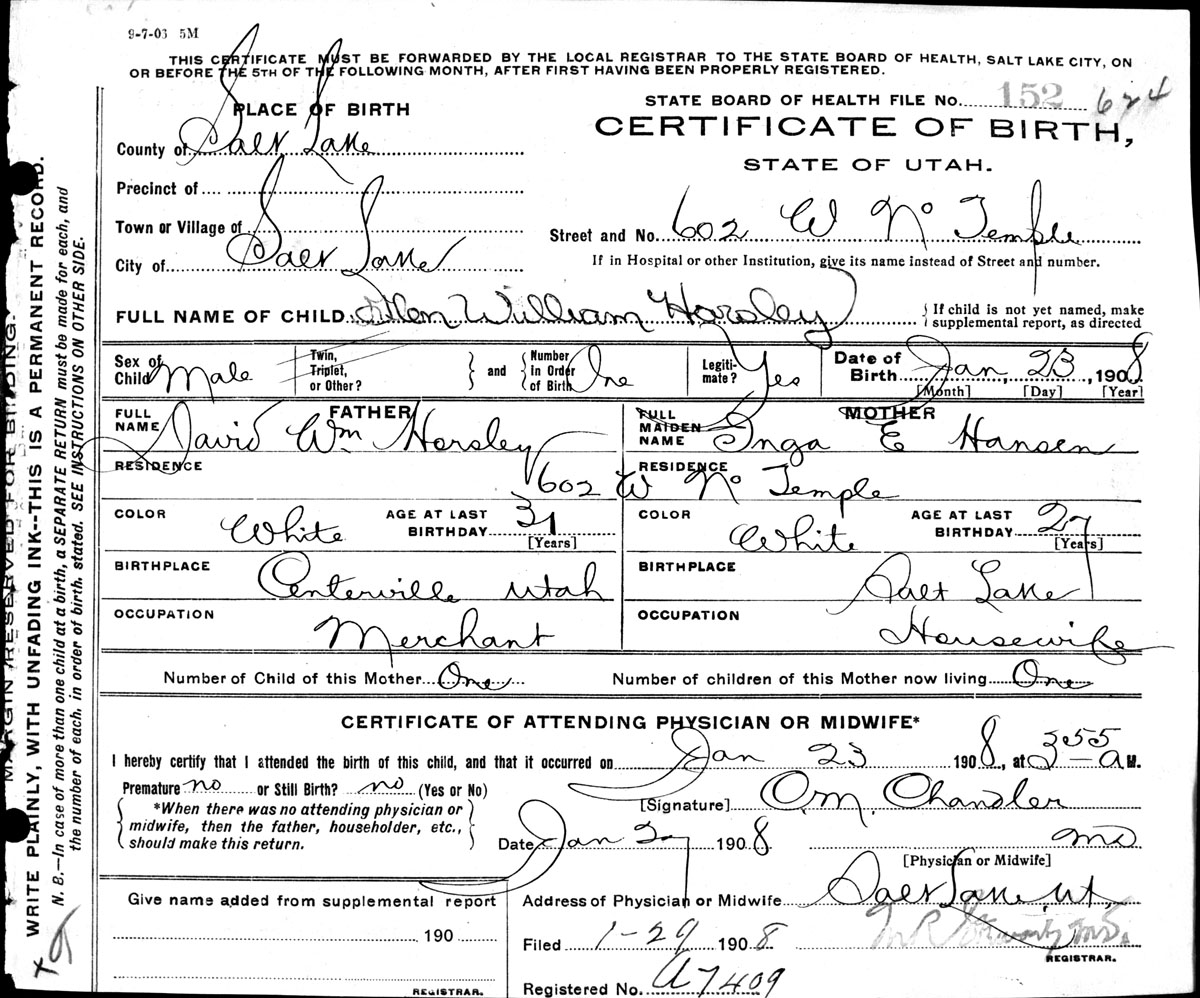 9-7-03 5M
THIS CERTIFICATE MUST BE FORWARDED BY THE LOCAL REGISTRAR TO THE STATE BOARD OF HEALTH, SALT LAKE CITY, ON
OR BEFORE THE 5TH OF THE FOLLOWING MONTH, AFTER FIRST HAVING BEEN PROPERLY REGISTERED.
MARGIN RESERVED FOR BINDING.
WRITE PLAINLY, WITH UNFADING INK--THIS IS A PERMANENT RECORD.
N. B.—In case of more than one child at a birth, a SEPARATE RETURN must be made for each, and
the number of each, in order of birth, stated. SEE INSTRUCTIONS ON OTHER SIDE.
PLACE OF BIRTH
County of Salt Lake
Precinct of
Town or Village of
City of Salt Lake
STATE BOARD OF HEALTH FILE No. 152 624
CERTIFICATE OF BIRTH,
STATE OF UTAH.
Street and No. 602 W No Temple
If in Hospital or other Institution, give its name instead of Street and number.
FULL NAME OF CHILD William Horsley
If child is not yet named, make
supplemental report, as directed
Sex of Child Male
Twin, Triplet, or Other?
and
Number In Order of Birth One
Legiti-mate? Yes
Date of Birth Jan, 23, 1908
[Month] [Day] [Year]
FATHER
FULL NAME David Wm Horsley
MOTHER
FULL MAIDEN NAME Inga E Hansen
RESIDENCE
RESIDENCE
602 W No Temple
COLOR White
AGE AT LAST BIRTHDAY 31
[Years]
COLOR White
AGE AT LAST BIRTHDAY 27
[Years]
BIRTHPLACE Centerville Utah
BIRTHPLACE Salt Lake
OCCUPATION Merchant
OCCUPATION Housewife
Number of Child of this Mother One
Number of children of this Mother now living One
CERTIFICATE OF ATTENDING PHYSICIAN OR MIDWIFE*
I hereby certify that I attended the birth of this child, and that it occurred on Jan 23 1908, at 3 55 a M.
Premature no or Still Birth? no (Yes or No)
*When there was no attending physician or
midwife, then the father, householder, etc.,
should make this return.
[Signature] O.M. Chandler
Date Jan 27 1908
MD
[Physician or Midwife]
Give name added from supplemental report
190
REGISTRAR.
Address of Physician or Midwife Salt Lake, Ut,
Filed 1-29 1908
REGISTRAR.
Registered No. A7409